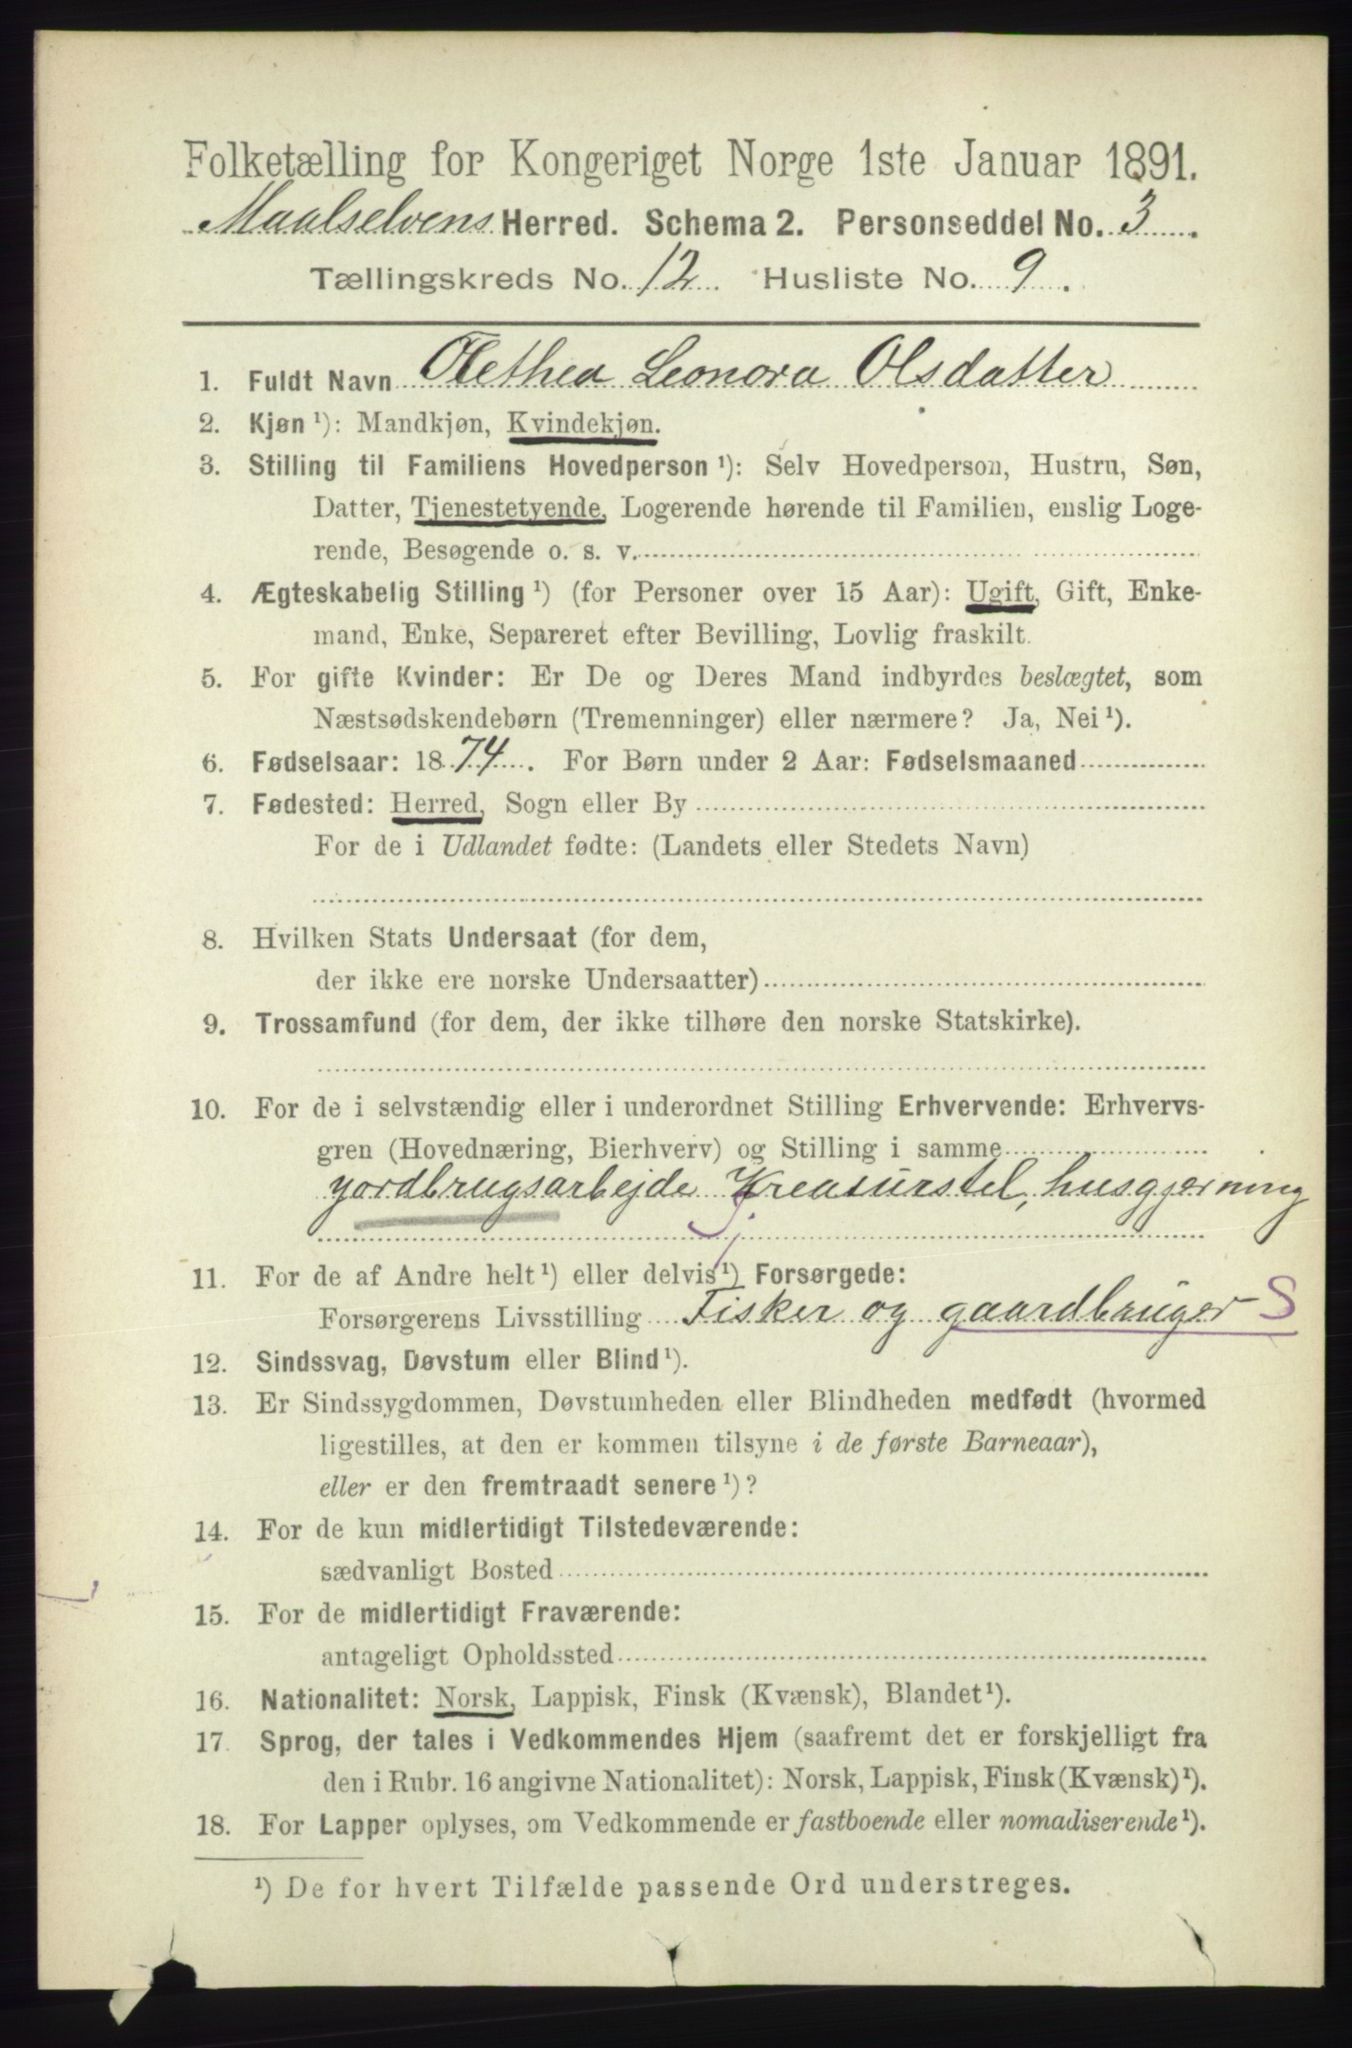 Folketælling for Kongeriget Norge 1ste Januar 1891.
Maalselvens Herred. Schema 2. Personseddel No. 3.
Tællingskreds No. 12. Husliste No. 9.
1. Fuldt Navn Olethea Leonora Olsdatter
2. Kjøn ¹): Mandkjøn, Kvindekjøn.
3. Stilling til Familiens Hovedperson ¹): Selv Hovedperson, Hustru, Søn,
Datter, Tjenestetyende, Logerende hørende til Familien, enslig Loge-
rende, Besøgende o. s. v.
4. Ægteskabelig Stilling ¹) (for Personer over 15 Aar): Ugift, Gift, Enke-
mand, Enke, Separeret efter Bevilling, Lovlig fraskilt.
5. For gifte Kvinder: Er De og Deres Mand indbyrdes beslægtet, som
Næstsødskendebørn (Tremenninger) eller nærmere? Ja, Nei ¹).
6. Fødselsaar: 1874. For Børn under 2 Aar: Fødselsmaaned
7. Fødested: Herred, Sogn eller By
For de i Udlandet fødte: (Landets eller Stedets Navn)
8. Hvilken Stats Undersaat (for dem,
der ikke ere norske Undersaatter)
9. Trossamfund (for dem, der ikke tilhøre den norske Statskirke).
10. For de i selvstændig eller i underordnet Stilling Erhvervende: Erhvervs-
gren (Hovednæring, Bierhverv) og Stilling i samme
yordbrugsarbejde Kreaturstel, husgjerning
11. For de af Andre helt ¹) eller delvis ¹) Forsørgede:
Forsørgerens Livsstilling Fisker og gaardbruger S
12. Sindssvag, Døvstum eller Blind ¹).
13. Er Sindssygdommen, Døvstumheden eller Blindheden medfødt (hvormed
ligestilles, at den er kommen tilsyne i de første Barneaar),
eller er den fremtraadt senere ¹)?
14. For de kun midlertidigt Tilstedeværende:
sædvanligt Bosted
15. For de midlertidigt Fraværende:
antageligt Opholdssted
16. Nationalitet: Norsk, Lappisk, Finsk (Kvænsk), Blandet ¹).
17. Sprog, der tales i Vedkommendes Hjem (saafremt det er forskjelligt fra
den i Rubr. 16 angivne Nationalitet): Norsk, Lappisk, Finsk (Kvænsk) ¹).
18. For Lapper oplyses, om Vedkommende er fastboende eller nomadiserende ¹).
¹) De for hvert Tilfælde passende Ord understreges.